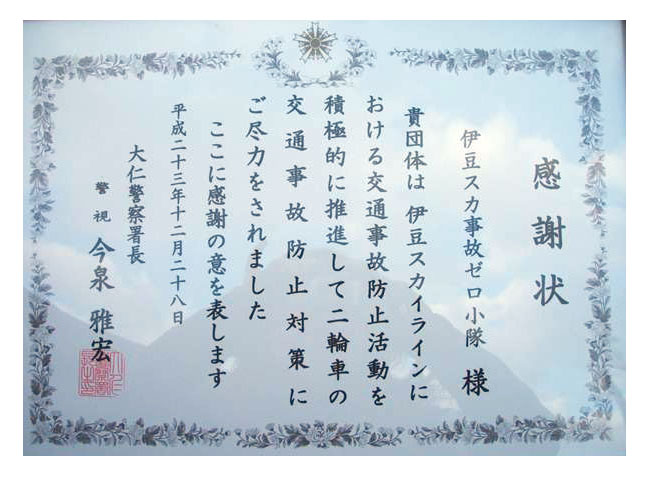 感謝状
伊豆スカ事故ゼロ小隊 様
貴団体は 伊豆スカイラインに
おける交通事故防止活動を
積極的に推進して二輪車の
交通事故防止対策に
ご尽力をされました
ここに感謝の意を表します
平成二十三年十二月二十八日
大仁警察署長
警視 今泉 雅宏